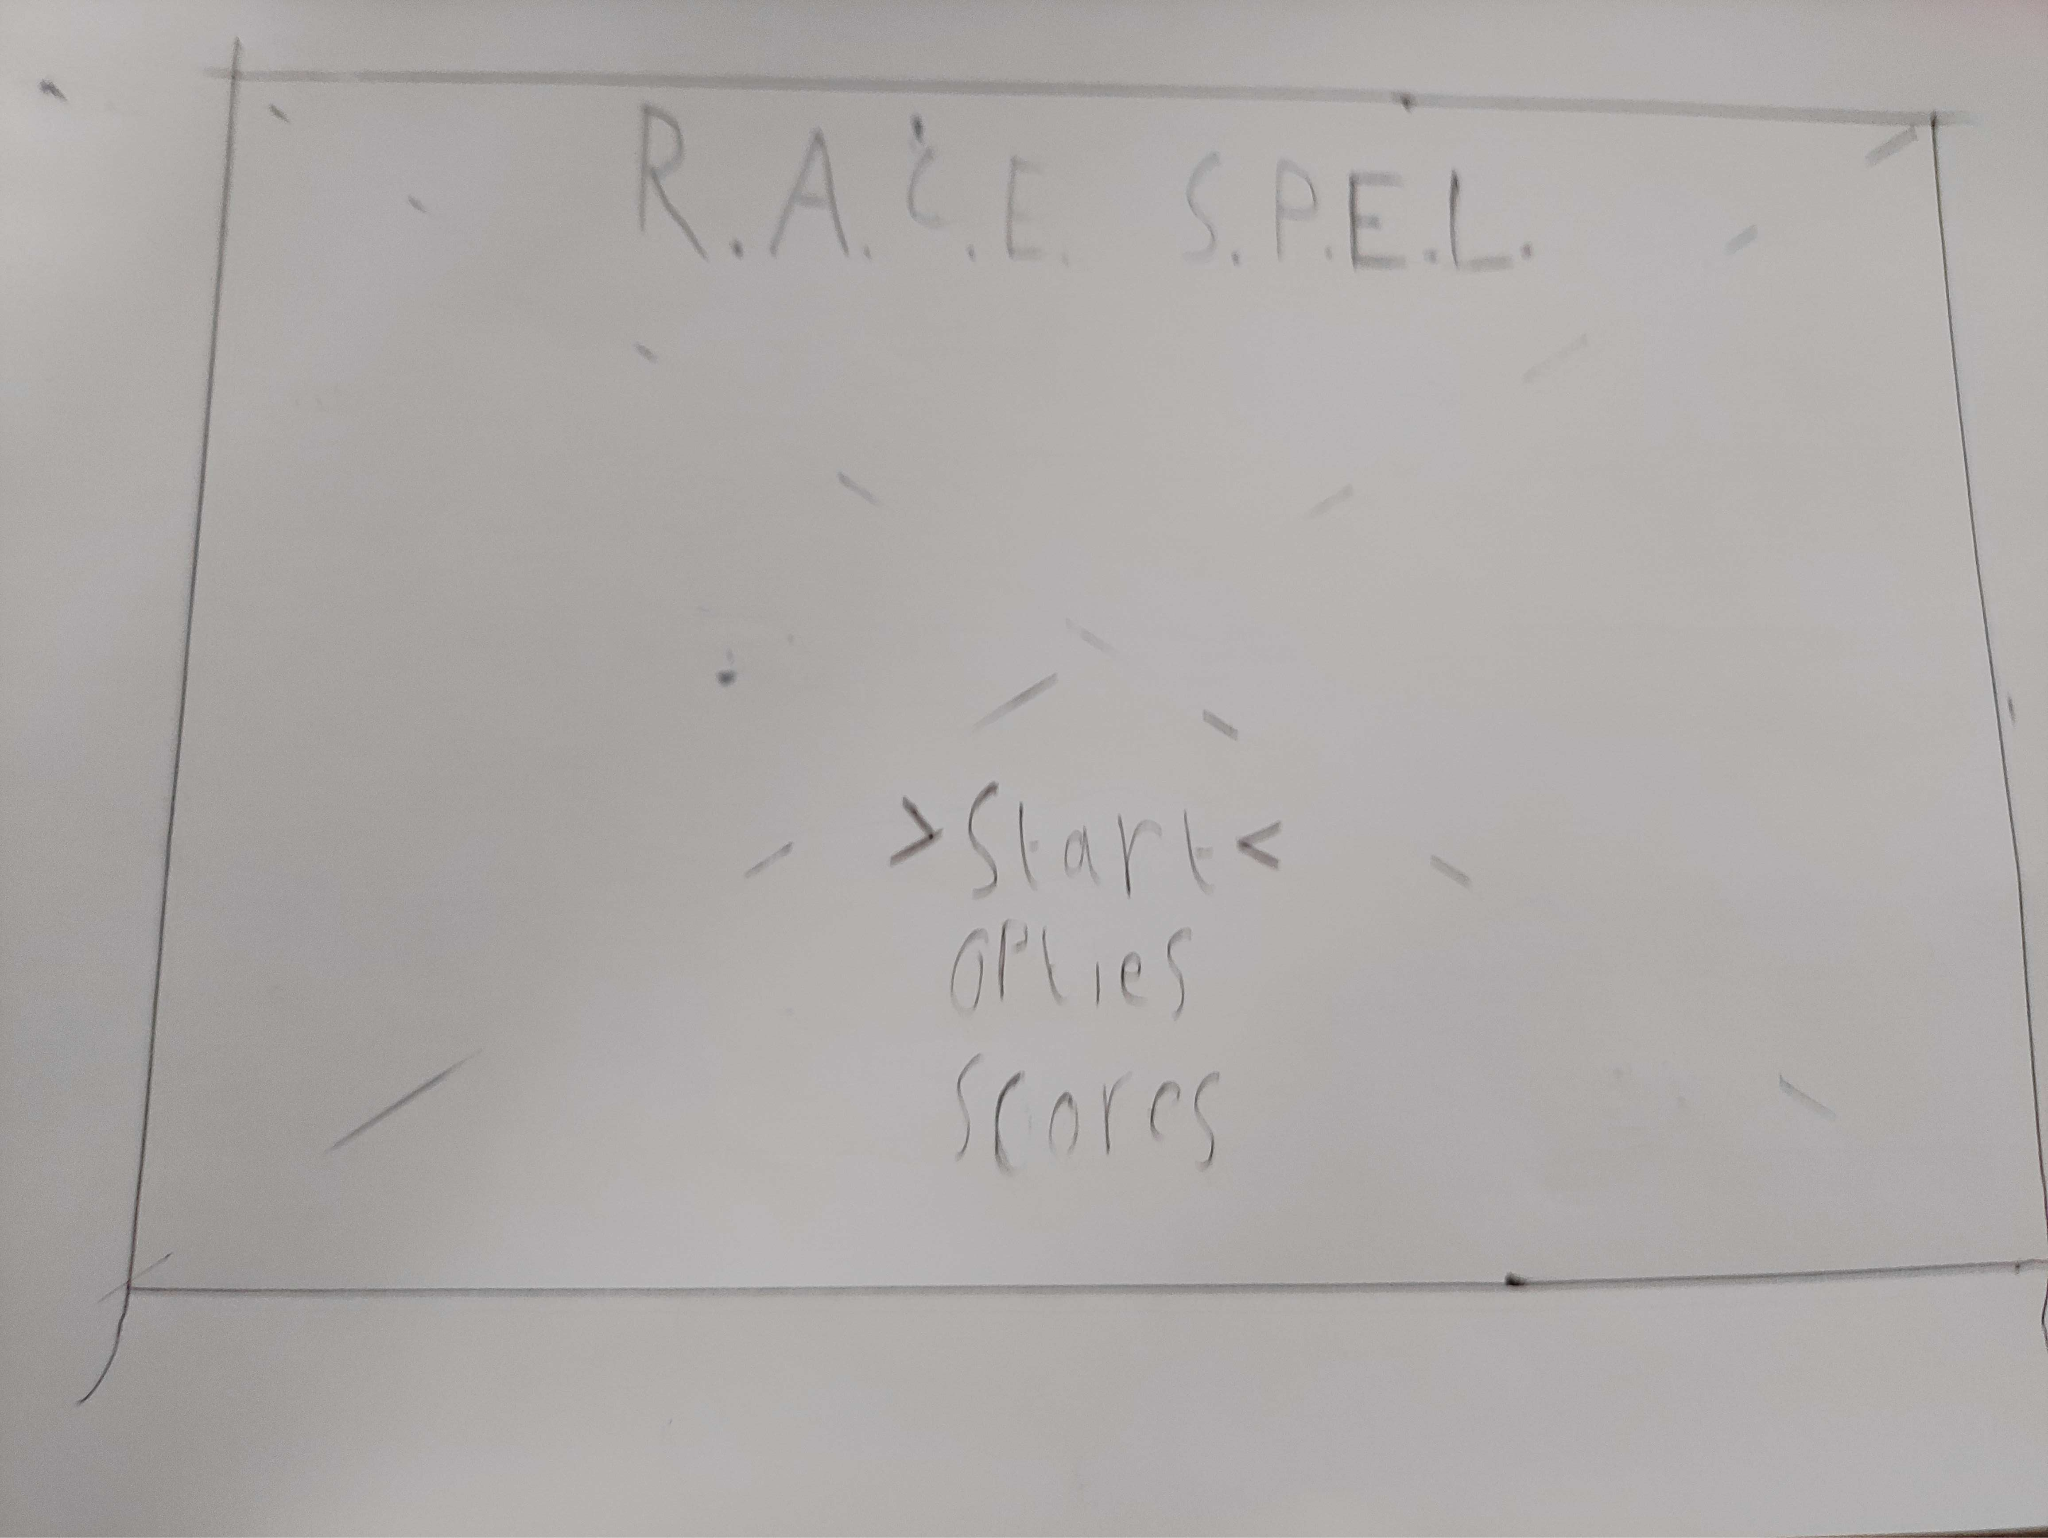 R.A.C.E. S.P.E.L.
>Start<
opties
Scores